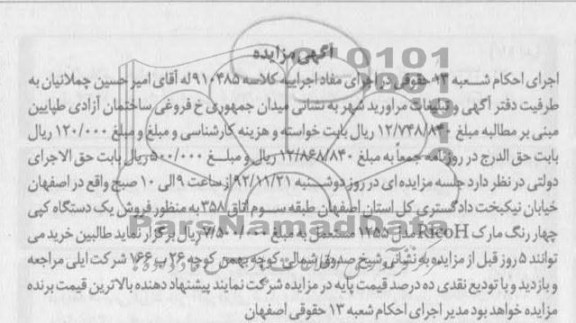 آگهی مزایده
اجرای احکام شعبه ۱۳ حقوقی در اجرای مفاد اجراییه کلاسه ۹۱۰۴۸۵ له آقای امیر حسین چملانیان به
طرفیت دفتر آگهی و تبلیغات مروارید شهر به نشانی میدان جمهوری خ فروغی ساختمان آزادی طپایین
مبنی بر مطالبه مبلغ ۱۲/۷۴۸/۸۴۰ ریال بابت خواسته و هزینه کارشناسی و مبلغ و مبلغ ۱۲۰/۰۰۰ ریال
بابت حق الدرج در روزنامه جمعاً به مبلغ ۱۲/۸۶۸/۸۴۰ ریال و مبلغ ۵۰۰/۰۰۰ ریال بابت حق الاجرای
دولتی در نظر دارد جلسه مزایده ای در روز دوشنبه ۹۲/۱۱/۲۱ از ساعت ۹ الی ۱۰ صبح واقع در اصفهان
خیابان نیکبخت دادگستری کل استان اصفهان طبقه سوم اتاق ۳۵۸ به منظور فروش یک دستگاه کپی
چهار رنگ مارک RicoH مدل ۱۲۵۵ مستعمل به مبلغ ریال برگزار نماید طالبین خرید می
توانند ۵ روز قبل از مزایده به نشانی شیخ صدوق شمالی کوچه بهمن کوچه ۲۶ پ ۱۶۶ شرکت ایلی مراجعه
و بازدید و با تودیع نقدی ده درصد قیمت پایه در مزایده شرکت نمایند پیشنهاد دهنده بالاترین قیمت برنده
مزایده خواهد بود مدیر اجرای احکام شعبه ۱۳ حقوقی اصفهان
ParsNamadData